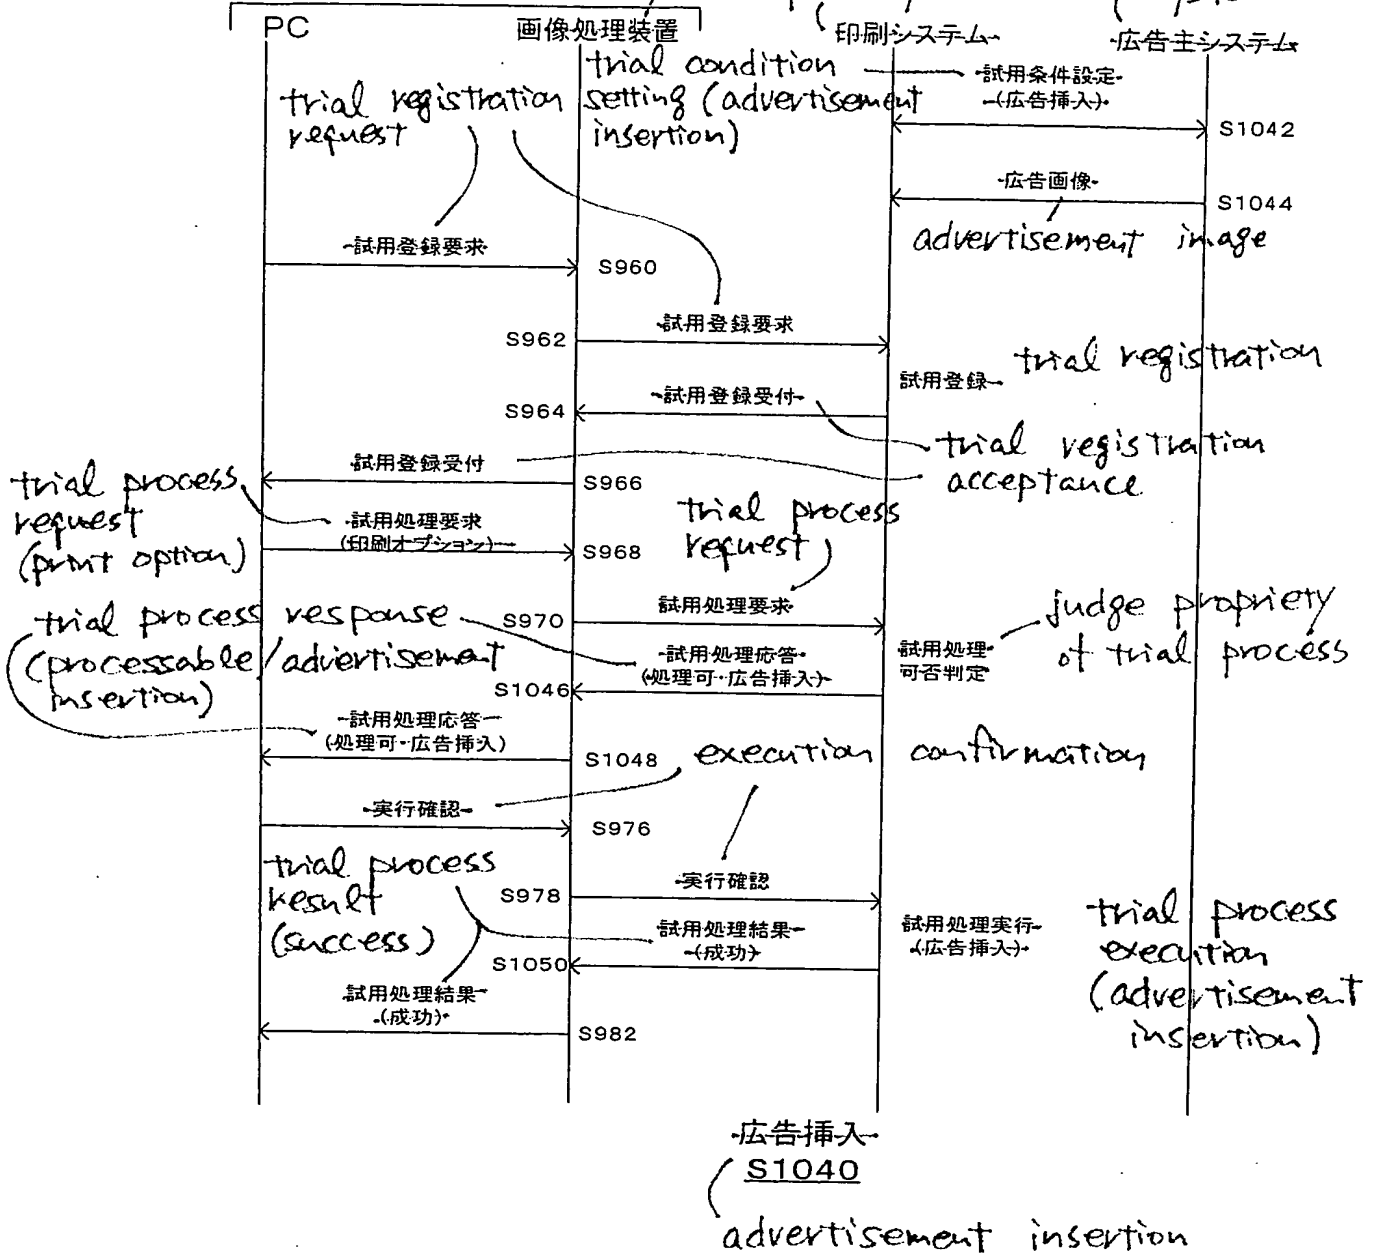 PC
画像処理装置
印刷システム
広告主システム
trial condition
setting (advertisement
insertion)
試用条件設定
(広告挿入)
trial registration
request
S1042
広告画像
S1044
advertisement image
試用登録要求
S960
試用登録要求
S962
試用登録
trial registration
試用登録受付
S964
trial registration
acceptance
試用登録受付
S966
trial process
request
(print option)
試用処理要求
(印刷オプション)
S968
trial process
request
試用処理要求
S970
judge propriety
of trial process
試用処理
可否判定
trial process response
(processable/advertisement
insertion)
試用処理応答
(処理可・広告挿入)
S1046
試用処理応答
(処理可・広告挿入)
S1048
execution confirmation
実行確認
S976
trial process
result
(success)
実行確認
S978
試用処理実行
(広告挿入)
trial process
execution
(advertisement
insertion)
試用処理結果
(成功)
S1050
試用処理結果
(成功)
S982
広告挿入
S1040
advertisement insertion